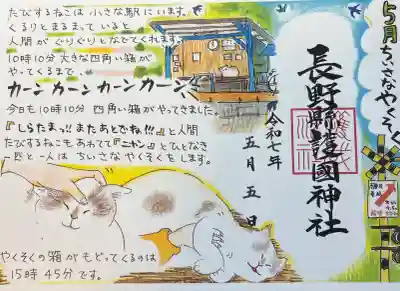 5月 ちいさなやくそく
たびするねこは 小さな駅にいます。
くるりとまるまって いると
人間が ぐりぐりとなでてくれます。
10時10分 大きな四角い箱が
やってくるまで。
カーン カーン カーン カーン
今日も10時10分 四角い箱がやってきました。
『しらたまっ!! またあとでね!!!』と人間
たびするねこもあわてて『ニャン』とひとなき
一匹と一人は ちいさなやくそくをします。
やくそくの箱が もどってくるのは
15時45分です。
長野縣護國神社
令和七年
五月五日